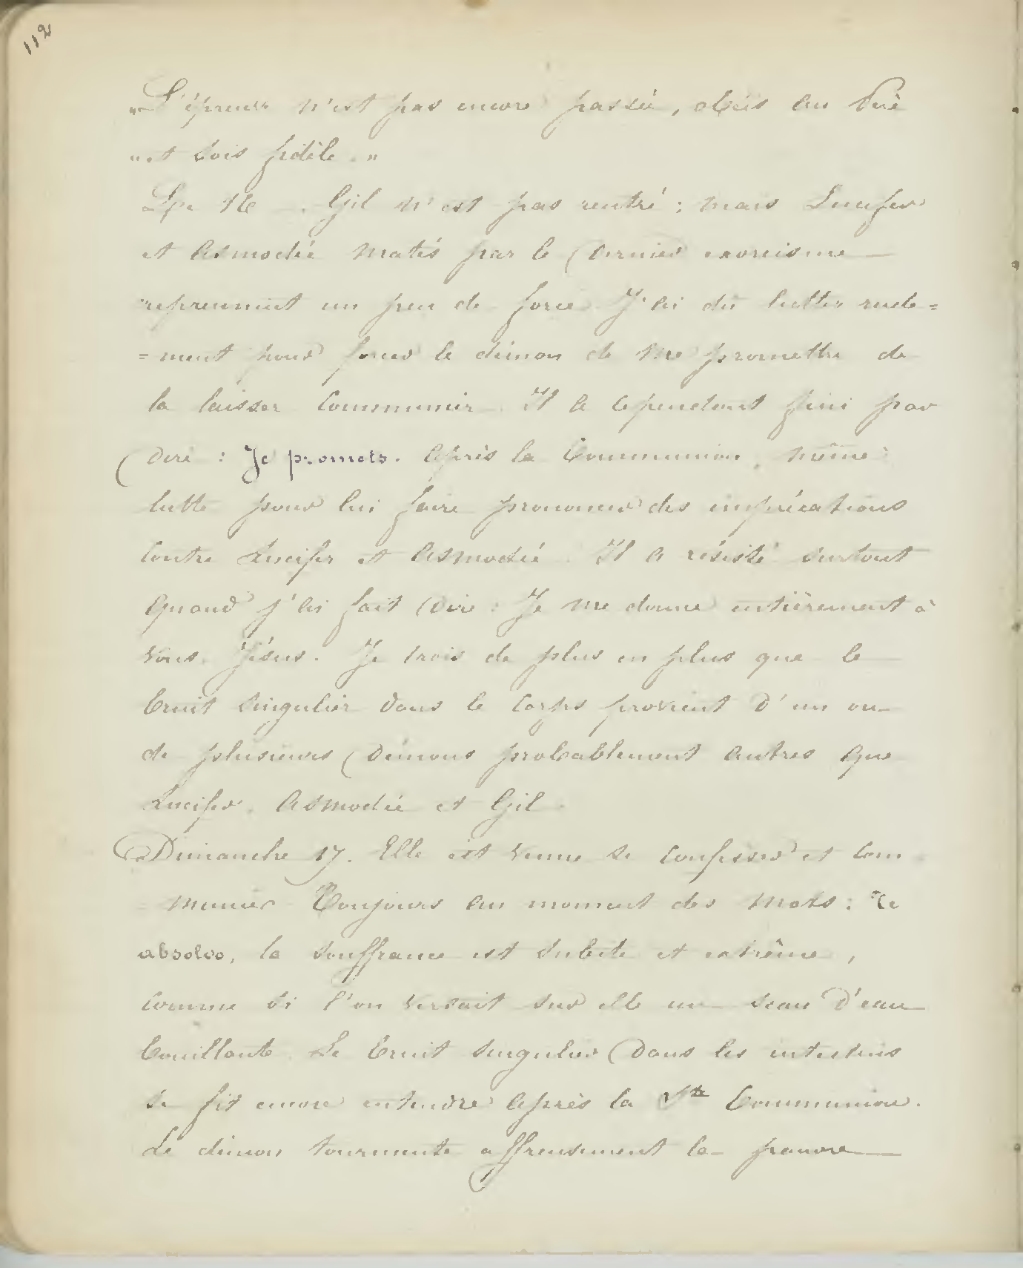 112
„L'épreuve n'est pas encore passée, obéis au Père
„et sois fidèle. „
Le 16 — Gil n'est pas rentré ; mais Lucifer
et Asmodée matés par le dernier exorcisme
reprennent un peu de force. J'ai dû lutter rude=
=ment pour forcer le démon de me promettre de
la laisser communier. Il a cependant fini par
dire : Je promets. Après la Communion, même
lutte pour lui faire prononcer des imprécations
contre Lucifer et Asmodée. Il a résisté surtout
quand j'ai fait dire : Je me donne entièrement à
vous, Jésus. Je crois de plus en plus que le
bruit singulier dans le corps provient d'un ou
de plusieurs démons probablement autres que
Lucifer, Asmodée et Gil.
Dimanche 17. Elle est venue se confesser et com=
=munier. Toujours au moment des mots : Te
absolvo, la souffrance est subite et extrême,
comme si l'on versait sur elle un seau d'eau
bouillante. Le bruit singulier dans les intestins
se fit encore entendre après la Ste Communion.
Le démon tourmente affreusement la pauvre